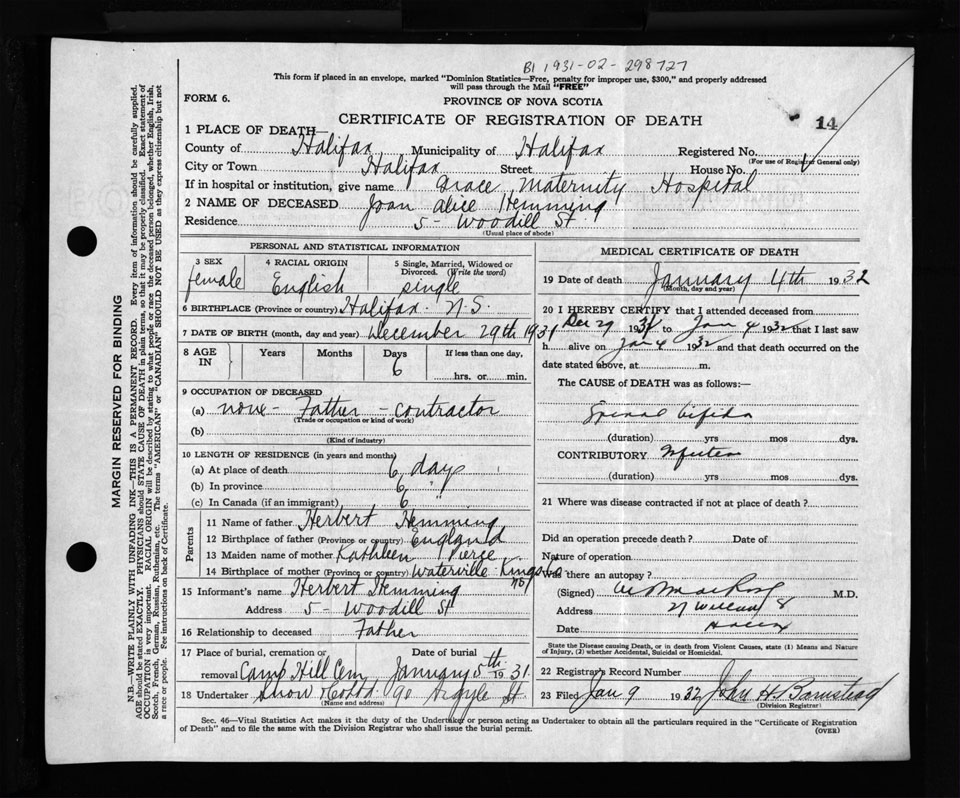 B1 1931-02-298727
This form if placed in an envelope, marked "Dominion Statistics—Free, penalty for improper use, $300," and properly addressed
will pass through the Mail "FREE"
FORM 6.
PROVINCE OF NOVA SCOTIA
CERTIFICATE OF REGISTRATION OF DEATH
14
1 PLACE OF DEATH—
County of Halifax Municipality of Halifax Registered No.
(For use of Registrar General only)
City or Town Halifax Street House No.
If in hospital or institution, give name Grace Maternity Hospital
2 NAME OF DECEASED Joan Alice Hemming
Residence 5- Woodill St
(Usual place of abode)
PERSONAL AND STATISTICAL INFORMATION
3 SEX 4 RACIAL ORIGIN 5 Single, Married, Widowed or Divorced. (Write the word)
female English single
6 BIRTHPLACE (Province or country) Halifax. N.S.
7 DATE OF BIRTH (month, day and year) December 29th 1931
8 AGE IN Years Months Days If less than one day,
6 hrs. or min.
9 OCCUPATION OF DECEASED
(a) none- Father - contractor
(Trade or occupation or kind of work)
(b)
(Kind of industry)
10 LENGTH OF RESIDENCE (in years and months)
(a) At place of death 6 days
(b) In province 6 "
(c) In Canada (if an immigrant) 6 "
Parents
11 Name of father Herbert Hemming
12 Birthplace of father (Province or country) England
13 Maiden name of mother Kathleen Pierce
14 Birthplace of mother (Province or country) Waterville Kings Co NS
15 Informant's name Herbert Hemming
Address 5- Woodill St
16 Relationship to deceased Father
17 Place of burial, cremation or removal Date of burial
Camp Hill Cem January 5th 1931
18 Undertaker Snow & Co Ltd 90 Argyle St
(Name and address)
MEDICAL CERTIFICATE OF DEATH
19 Date of death January 4th 1932
(Month, day and year)
20 I HEREBY CERTIFY that I attended deceased from
Dec 29 1931 to Jan 4 1932 that I last saw
h alive on Jan 4 1932 and that death occurred on the
date stated above, at m.
The CAUSE of DEATH was as follows:—
Spinal bifida
(duration) yrs mos dys.
CONTRIBUTORY
(duration) yrs mos dys.
21 Where was disease contracted if not at place of death?
Did an operation precede death? Date of
Nature of operation
Was there an autopsy?
(Signed) M.D.
Address
Date
State the Disease causing Death, or in death from Violent Causes, state (1) Means and Nature
of Injury, (2) whether Accidental, Suicidal or Homicidal.
22 Registrar's Record Number
23 Filed Jan 9 1932 John H. Barnstead
(Division Registrar)
Sec. 46—Vital Statistics Act makes it the duty of the Undertaker or person acting as Undertaker to obtain all the particulars required in the "Certificate of Registration
of Death" and to file the same with the Division Registrar who shall issue the burial permit. (OVER)
MARGIN RESERVED FOR BINDING
N.B.—WRITE PLAINLY WITH UNFADING INK—THIS IS A PERMANENT RECORD. Every item of information should be carefully supplied.
AGE should be stated EXACTLY. PHYSICIANS should STATE CAUSE OF DEATH in plain terms, so that it may be properly classified. Exact statement of
OCCUPATION is very important. RACIAL ORIGIN will be described by stating to what people or race the deceased person belonged, whether English, Irish,
Scotch, French, German, Russian, Ruthenian, etc. The terms "AMERICAN" or "CANADIAN" SHOULD NOT BE USED as they express citizenship but not
a race or people. Fee instructions on back of Certificate.